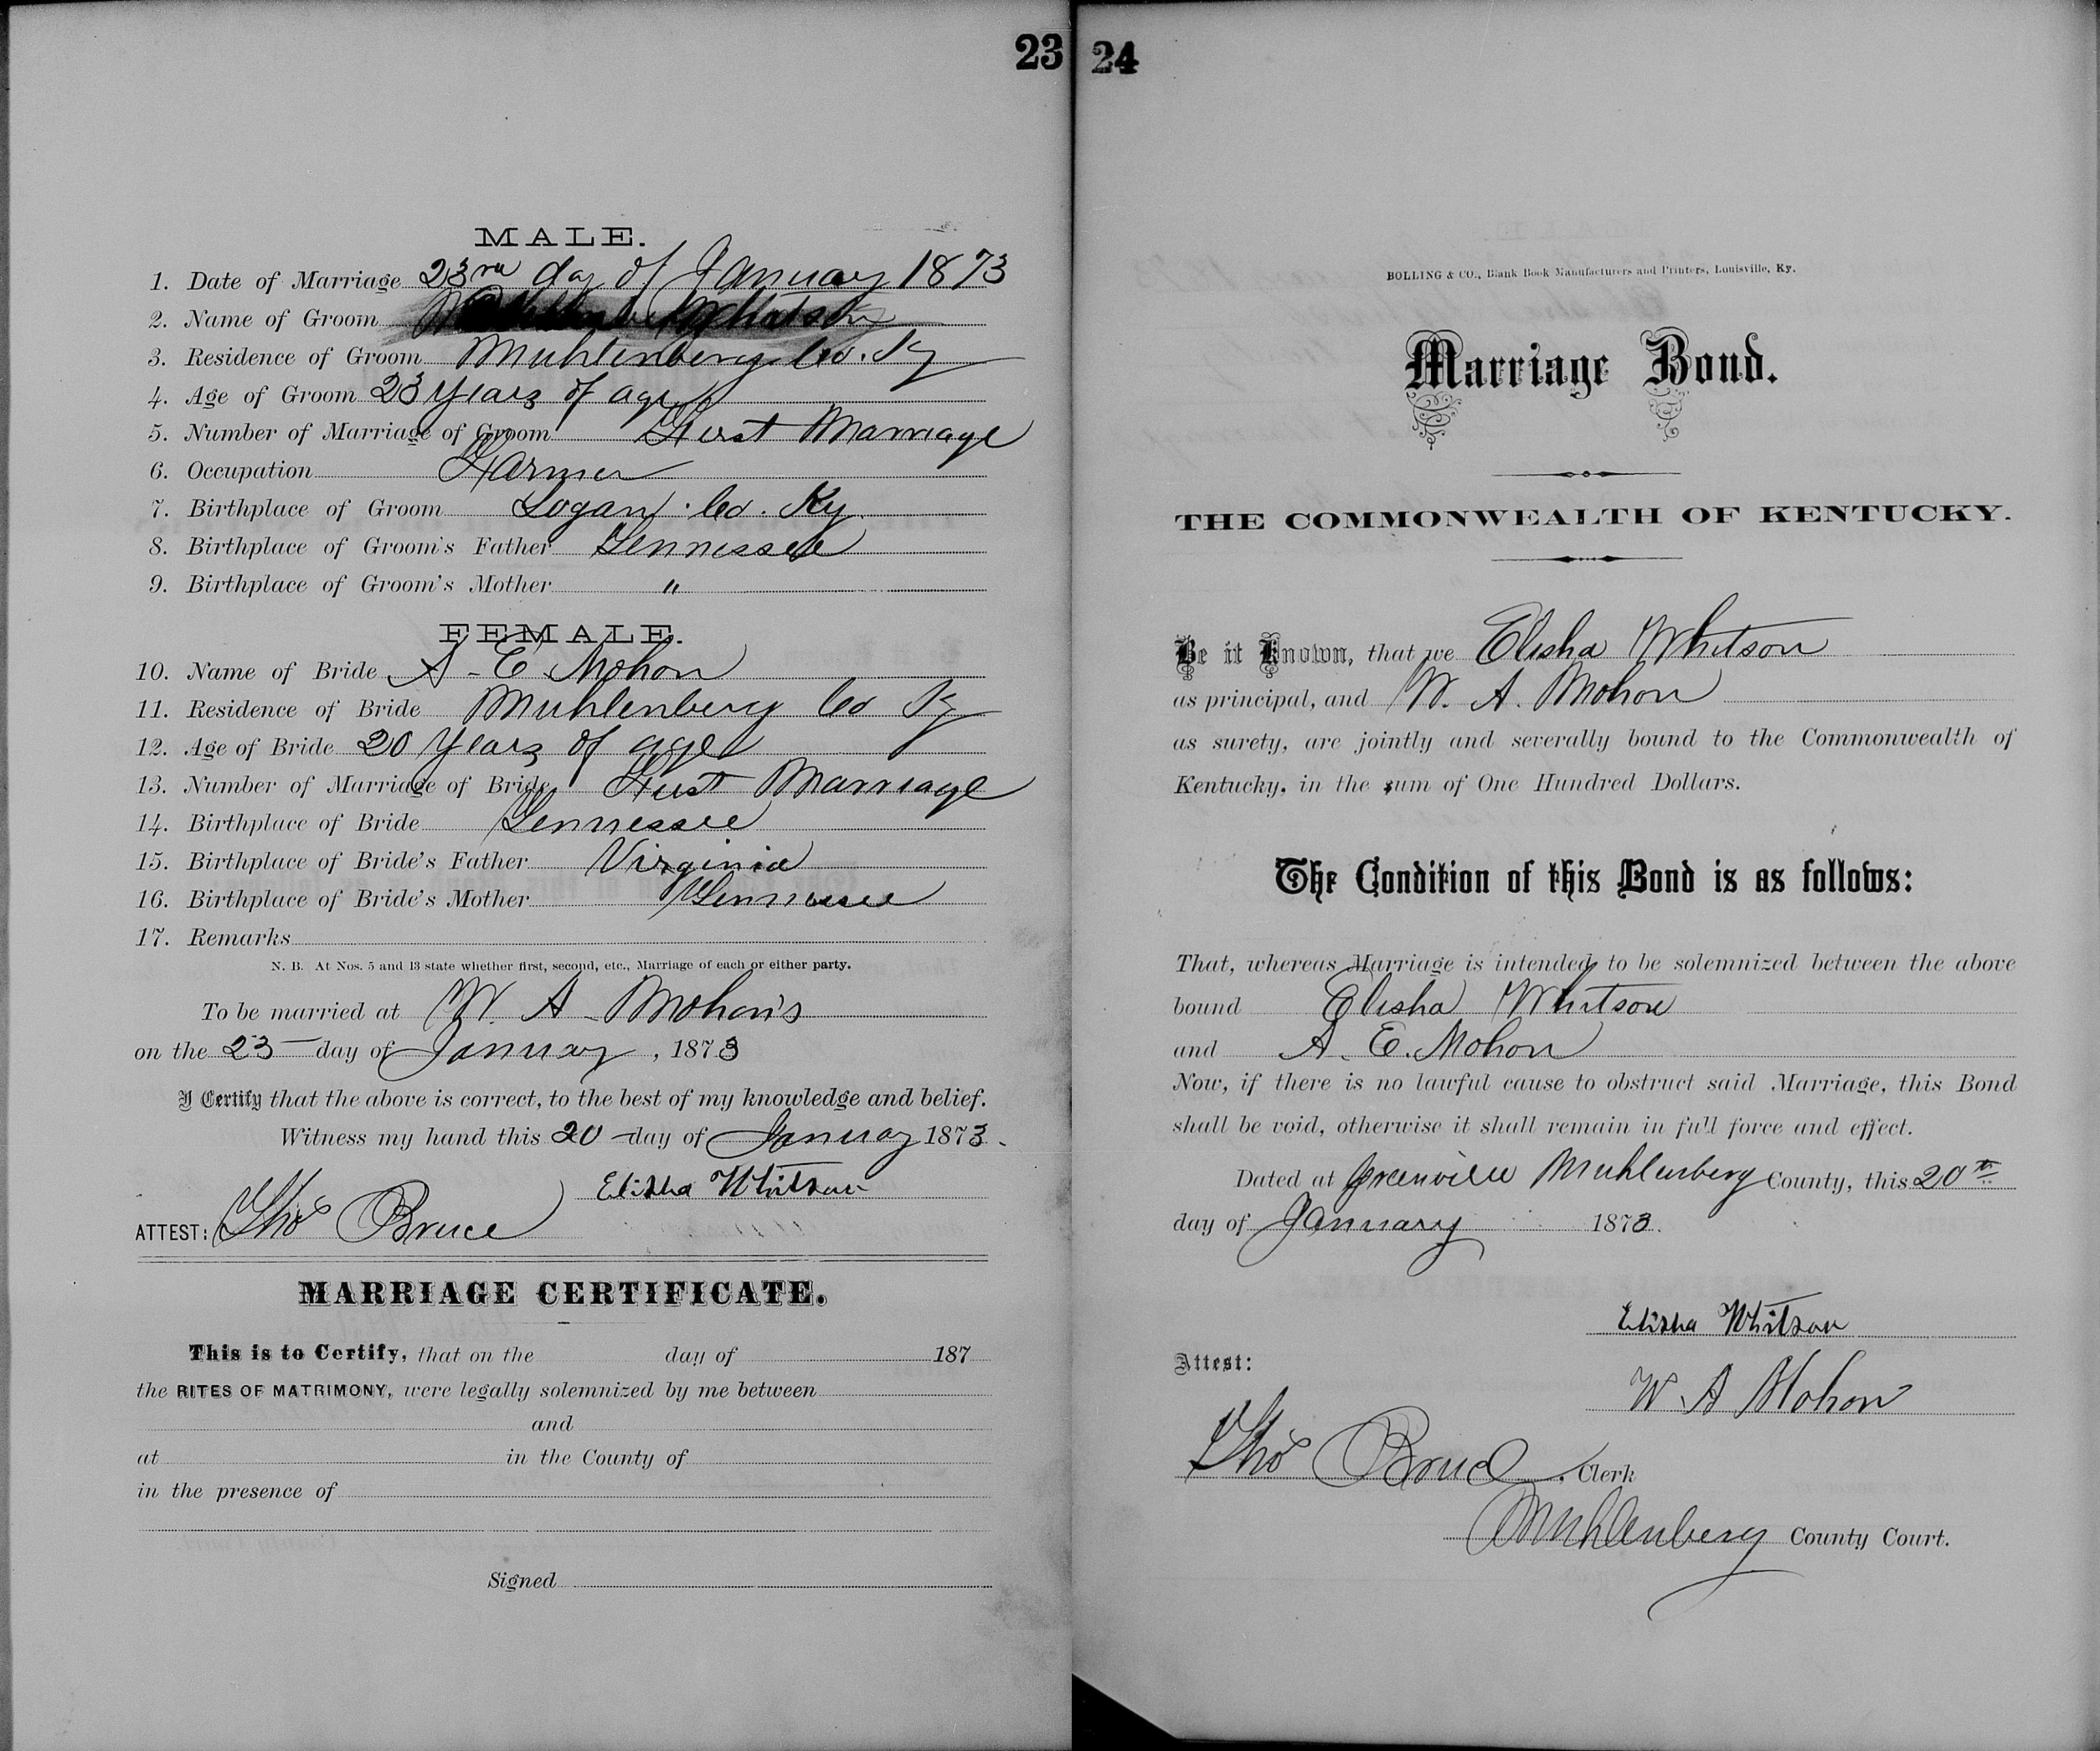 23
MALE.
1. Date of Marriage 23rd day of January 1873
2. Name of Groom Whitson
3. Residence of Groom Muhlenberg Co. Ky
4. Age of Groom 23 years of age
5. Number of Marriage of Groom First Marriage
6. Occupation Farmer
7. Birthplace of Groom Logan Co. Ky
8. Birthplace of Groom's Father Tennessee
9. Birthplace of Groom's Mother "
FEMALE.
10. Name of Bride A - E Mohon
11. Residence of Bride Muhlenberg Co Ky
12. Age of Bride 20 years of age
13. Number of Marriage of Bride First Marriage
14. Birthplace of Bride Tennessee
15. Birthplace of Bride's Father Virginia
16. Birthplace of Bride's Mother Tennessee
17. Remarks
N. B. At Nos. 5 and 13 state whether first, second, etc., Marriage of each or either party.
To be married at W. A - Mohon's
on the 23 day of January, 1873
I Certify that the above is correct, to the best of my knowledge and belief.
Witness my hand this 20 day of January 1873.
Elisha Whitson
ATTEST: Thos Bruce
MARRIAGE CERTIFICATE.
This is to Certify, that on the day of 187
the RITES OF MATRIMONY, were legally solemnized by me between
and
at in the County of
in the presence of
Signed
24
BOLLING & CO., Blank Book Manufacturers and Printers, Louisville, Ky.
Marriage Bond.
THE COMMONWEALTH OF KENTUCKY.
Be it Known, that we Elisha Whitson
as principal, and W. A. Mohon
as surety, are jointly and severally bound to the Commonwealth of
Kentucky, in the sum of One Hundred Dollars.
The Condition of this Bond is as follows:
That, whereas Marriage is intended to be solemnized between the above
bound Elisha Whitson
and A. E. Mohon
Now, if there is no lawful cause to obstruct said Marriage, this Bond
shall be void, otherwise it shall remain in full force and effect.
Dated at Greenville Muhlenberg County, this 20th
day of January 1873.
Elisha Whitson
Attest:
W A Mohon
Thos Bruce, Clerk
Muhlenberg County Court.